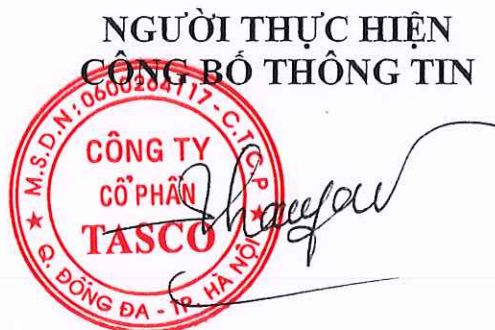 NGƯỜI THỰC HIỆN
CÔNG BỐ THÔNG TIN
M.S.D.N: 0600264117 - C.T.C.P
CÔNG TY
CỔ PHẦN
TASCO
Q. ĐỐNG ĐA - TP. HÀ NỘI